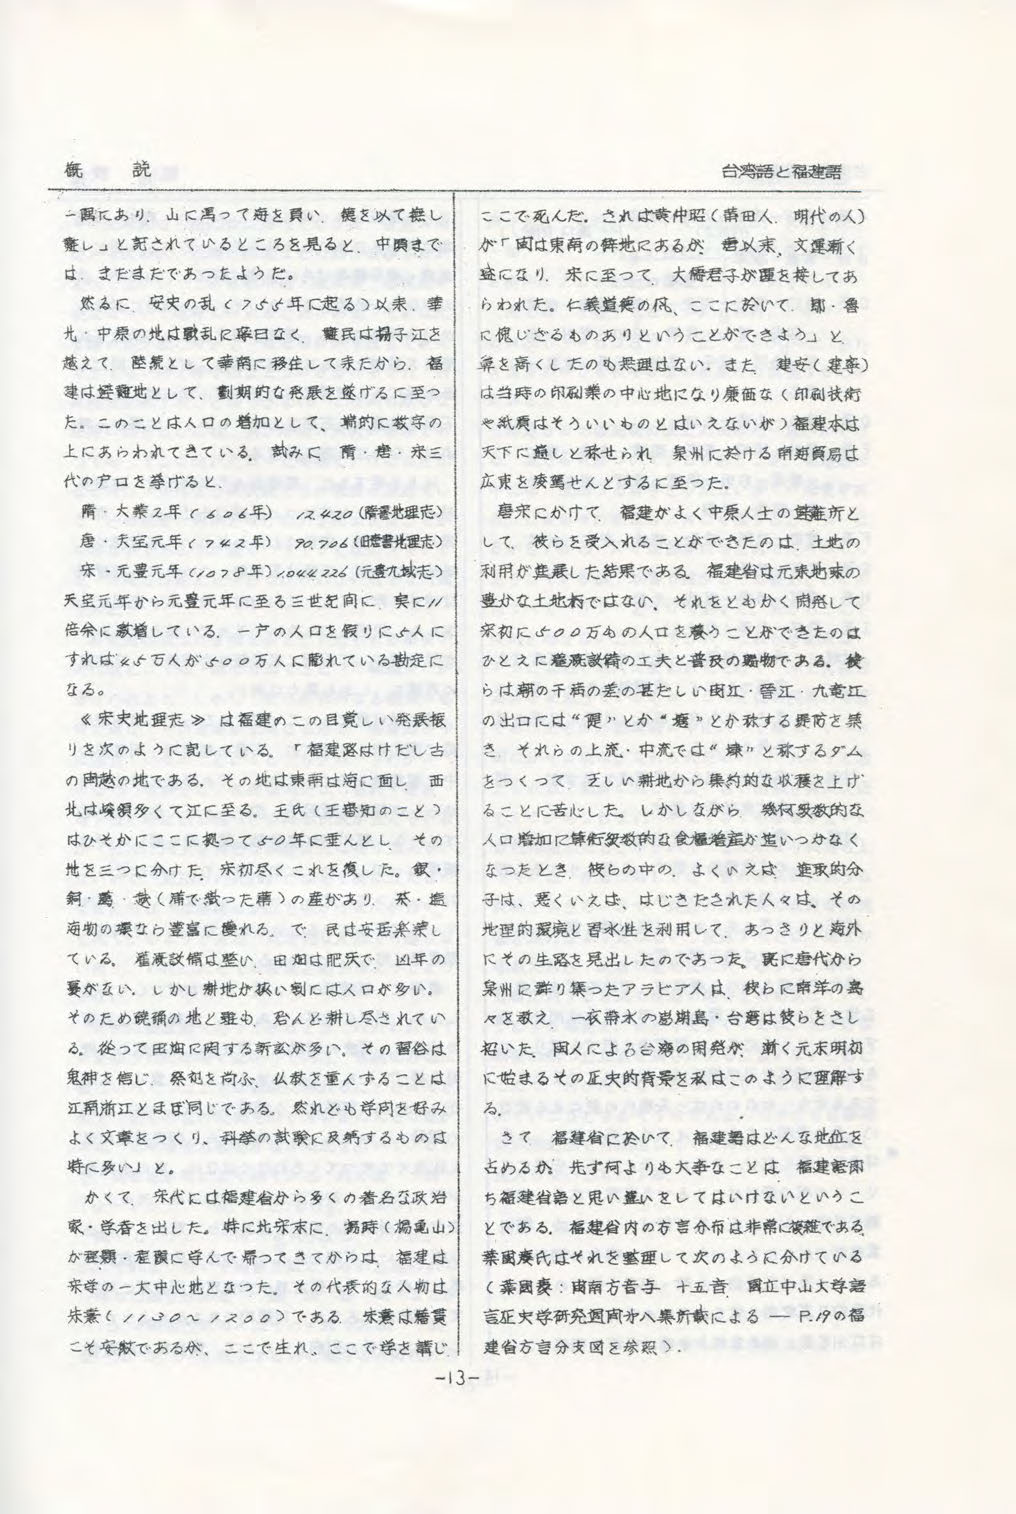 概　説
台湾語と福建語
一隅にあり、山に馮って海を負い、徳を以て撫し
難し」と記されているところを見ると、中頃まで
は、まだまだであったようだ。
然るに、安史の乱(755年に起る)以来、華
北・中原の地は戦乱に寧日なく、難民は揚子江を
越えて、陸続として華南に移住して来たから、福
建は避難地として、劃期的な発展を遂げるに至つ
た。このことは人口の増加として、端的に数字の
上にあらわれてきている。試みに、隋・唐・宋三
代の戸口を挙げると、
隋・大業2年(606年)　12,420(隋書地理志)
唐・天宝元年(742年)　90,706(旧唐書地理志)
宋・元豊元年(1078年)1,044,226(元豊九域志)
天宝元年から元豊元年に至る三世紀間に、実に11
倍余に激増している。一戸の人口を仮りに5人に
すれば45万人が500万人に膨れている勘定に
なる。
≪宋史地理志≫は福建のこの目覚しい発展振
りを次のように記している。「福建路はけだし古
の閩越の地である。その地は東南は海に面し、西
北は峻嶺多くて江に至る。王氏(王審知のこと)
はひそかにここに拠って50年に垂んとし、その
地を三つに分けた。宋初尽くこれを復した。銀・
銅・・(浦で織った)の産があり、茶・塩
海物の類なら豊富に穫れる。で、民は安居楽業し
ている。灌漑設備は整い、田畑は肥沃で、凶年の
憂がない。しかし耕地が狭い割には人口が多い。
そのため磽确の地と雖も、殆んど耕し尽されてい
る。従って田畑に関する訴訟が多い。その習俗は
鬼神を信じ、祭祀を尚ぶ、仏教を重んずることは
江南浙江とほぼ同じである。然れども学問を好み
よく文章をつくり、科挙の試験に及第するものは
特に多い」と。
かくて、宋代には福建省から多くの著名な政治
家・学者を出した。特に北宋末に、楊時(楊亀山)
が程顥・程頤に学んで帰ってきてからは、福建は
宋学の一大中心地となった。その代表的な人物は
朱熹(1130～1200)である。朱熹は籍貫
こそ安徽であるが、ここで生れ、ここで学を講じ
ここで死んだ。されば黄仲昭(莆田人、明代の人)
が「閩は東南の僻地にあるが、唐以末、文運漸く
盛になり、宋に至って、大儒君子が踵を接してあ
らわれた。仁義道徳の風、ここに於いて、鄒・魯
に愧じざるものありということができよう」と、
鼻を高くしたのも無理はない。また、建安(建寧)
は当時の印刷業の中心地になり廉価な(印刷技術
や紙質はそういいものとはいえないが)福建本は
天下に遍しと称せられ、泉州に於ける南海貿易は
広東を凌駕せんとするに至つた。
唐宋にかけて、福建がよく中原人士の避難所と
して、彼らを受入れることができたのは、土地の
利用が進展した結果である。福建省は元来地味の
豊かな土地柄ではない。それをともかく開発して
宋初に500万もの人口を養うことができたのは
ひとえに灌漑設備の工夫と普及の賜物である。彼
らは潮の干満の差の甚だしい閩江・晋江・九竜江
の出口には“堤”とか“堰”とか称する堤防を築
き、それらの上流・中流では“壊”と称するダム
をつくつて、乏しい耕地から集約的な収穫を上げ
ることに苦心した。しかしながら、幾何級数的な
人口増加に算術級数的な食糧増産が追いつかなく
なったとき、彼らの中の、よくいえば、進取的分
子は、悪くいえば、はじきだされた人々は、その
地理的環境と習水性を利用して、あっさりと海外
にその生路を見出したのであつた。既に唐代から
泉州に群り集ったアラビア人は、彼らに南洋の島
々を教え、一衣帯水の澎湖島・台湾は彼らをさし
招いた。閩人による台湾の開発が、漸く元末明初
に始まるその歴史的背景を私はこのように理解す
る。
さて、福建省に於いて、福建語はどんな地位を
占めるか。先ず何よりも大事なことは、福建語即
ち福建省語と思い違いをしてはいけないというこ
とである。福建省内の方言分布は非常に複雑である。
葉国慶氏はそれを整理して次のように分けている
(葉国慶：閩南方音与　十五音、国立中山大学語
言歴史学研究週間廿八集所載による―P.19の福
建省方言分支図を参照)。
-13-